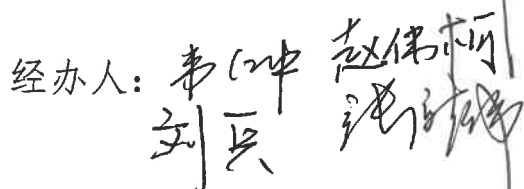 经办人：韦仁冲 赵伟柯
刘兵